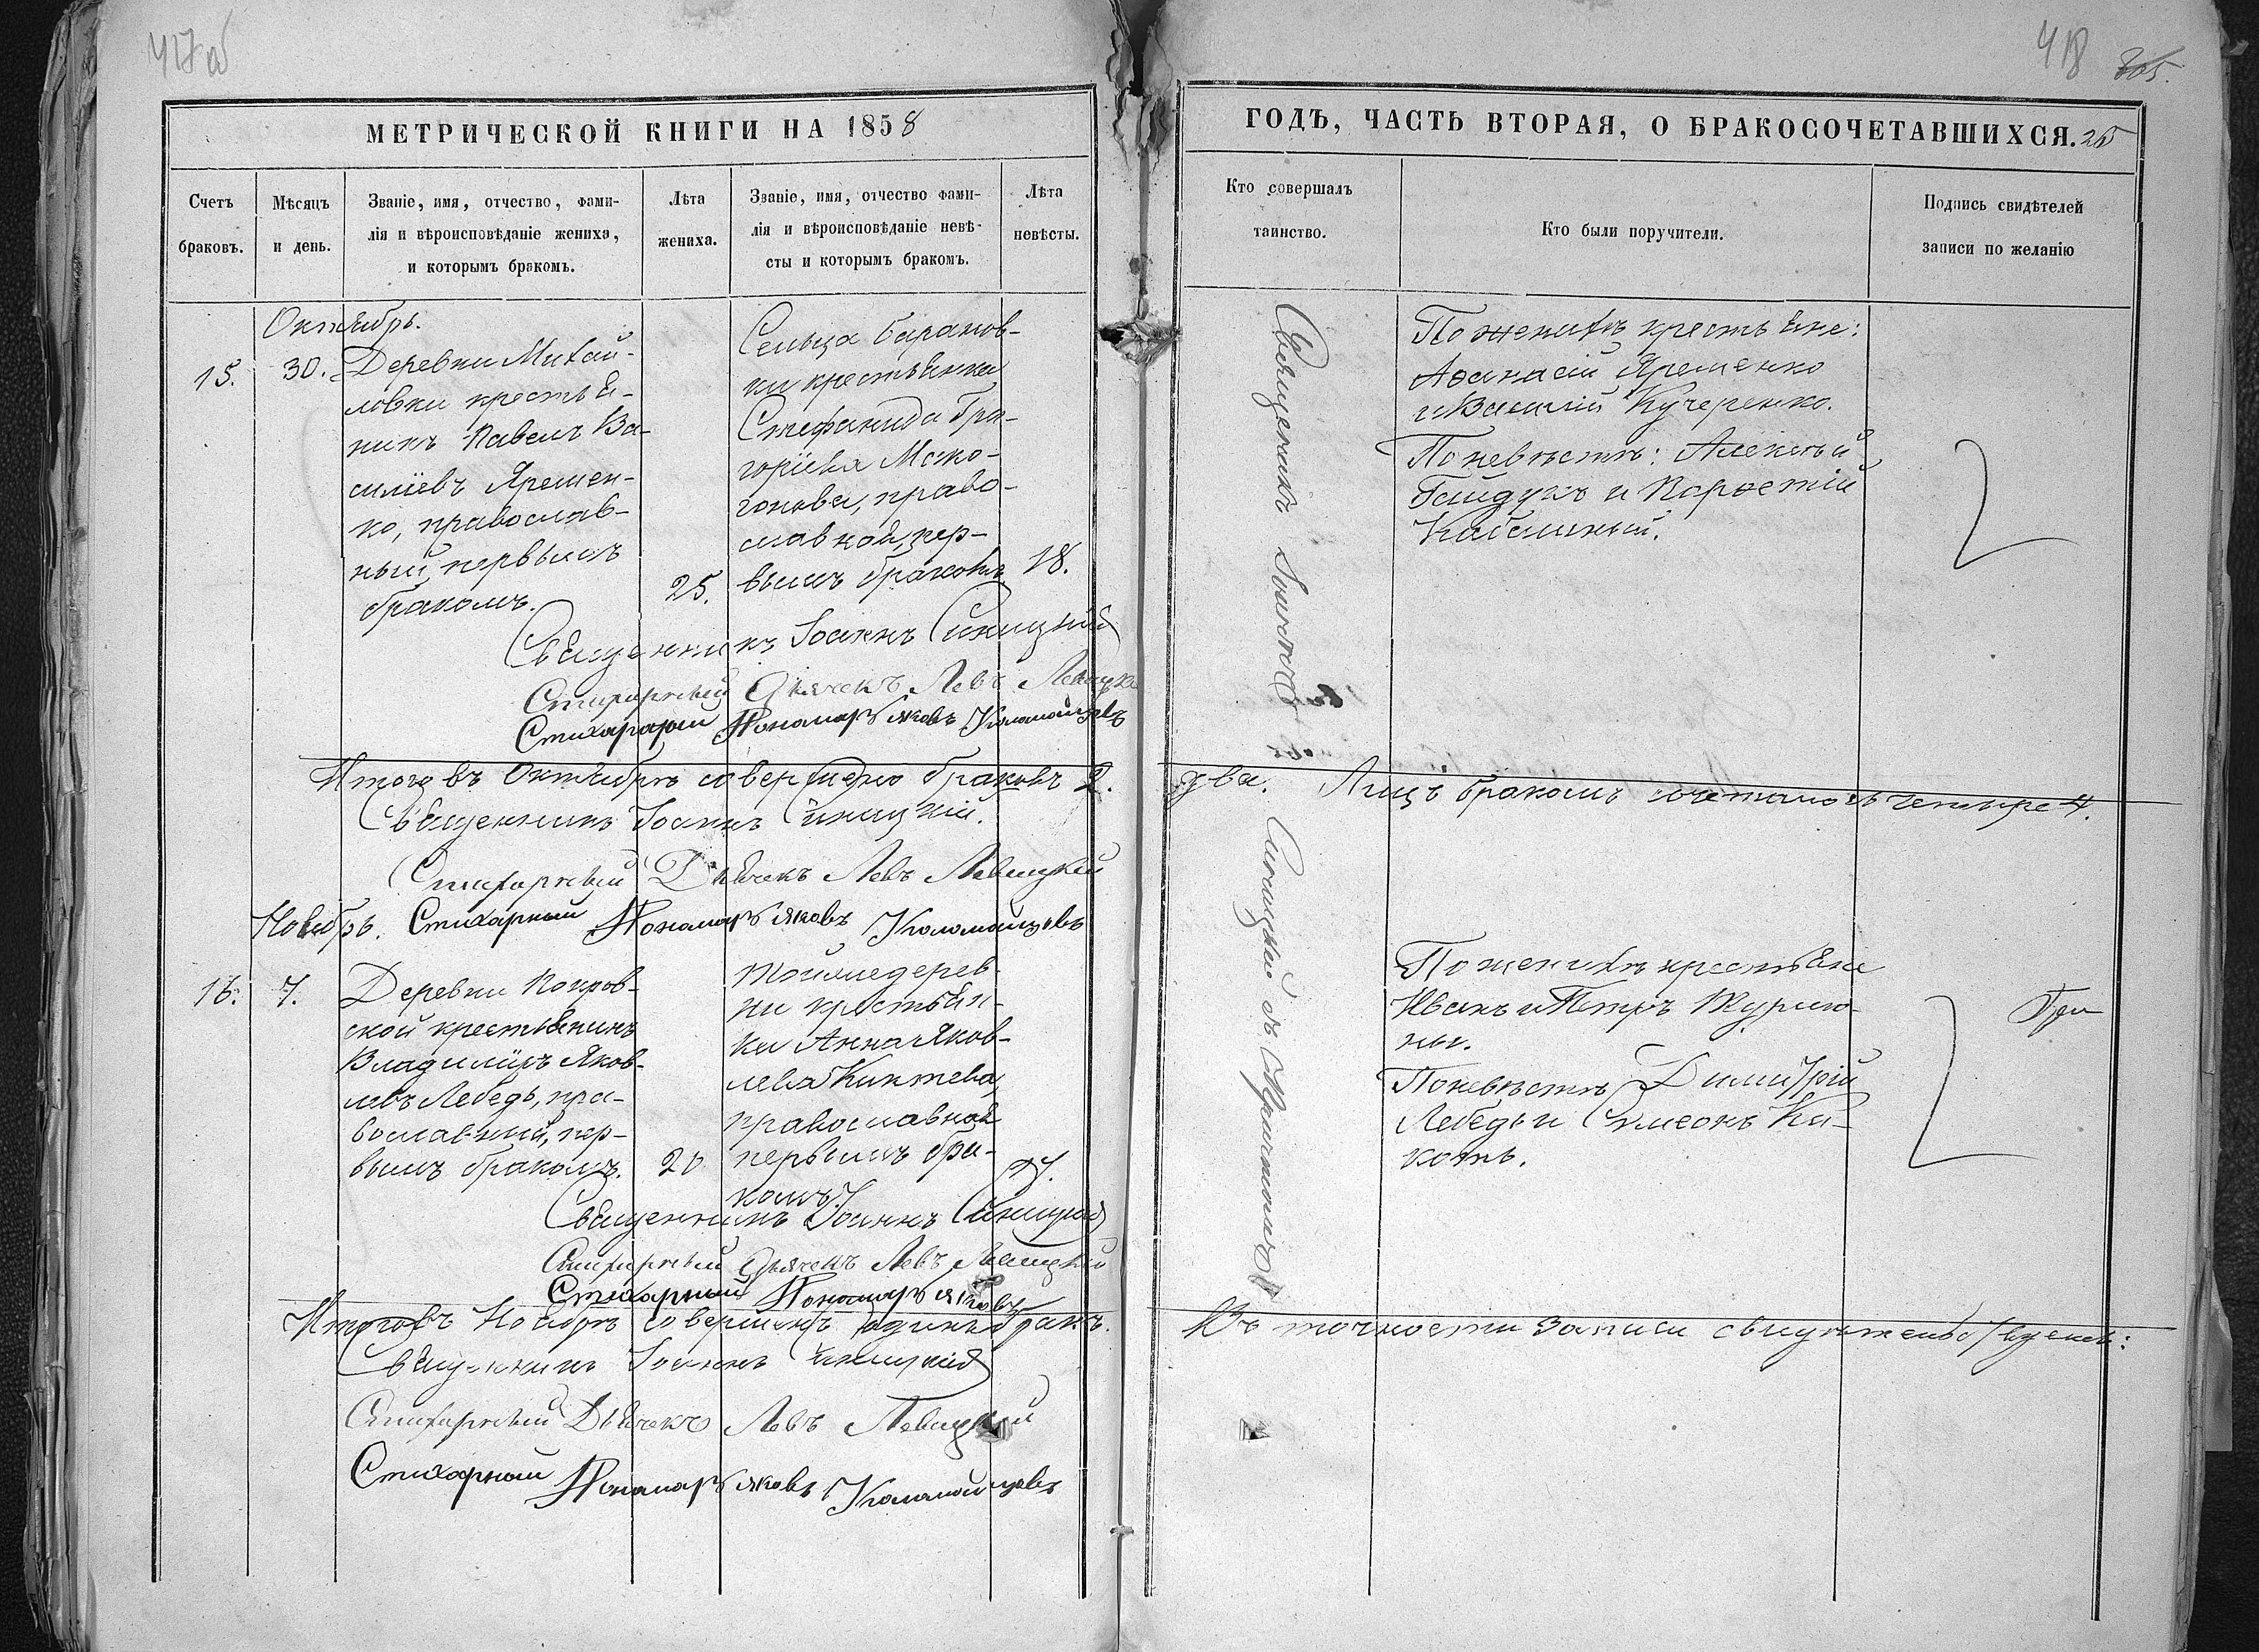 417об
418
305.
МЕТРИЧЕСКОЙ КНИГИ НА 1858
ГОДЪ, ЧАСТЬ ВТОРАЯ, О БРАКОСОЧЕТАВШИХСЯ.
Счетъ
браковъ.
Мѣсяцъ
и день.
Званіе, имя, отчество, фами-
лія и вѣроисповѣданіе жениха,
и которымъ бракомъ.
Лѣта
жениха.
Званіе, имя, отчество фами-
лія и вѣроисповѣданіе невѣ-
сты и которымъ бракомъ.
Лѣта
невѣсты.
Кто совершалъ
таинство.
Кто были поручители.
Подпись свидѣтелей
записи по желанію
Октябрь.
15.
30.
Деревни Михай-
ловки крестья-
нинъ Павелъ Ва-
силіевъ Яремен-
ко, православ-
ный первымъ
бракомъ.
25.
Сельца Баранов-
ки крестьянка
Стефанида Гри-
горіева
право-
славной, пер-
вымъ бракомъ
18.
Священникъ Іоаннъ Синицкій
По женихѣ крестьяне:
Афанасій Яременко
и Василій Кучеренко.
По невѣстѣ: Алексѣй
Гайдукъ и
Стихарный Дьячекъ Левъ Левицкій
Стихарный Пономарь Яковъ Коломойцовъ
Итого въ Октябрѣ совершено браковъ 2.
два. Лицъ бракомъ сочеталось четыре 4.
Священникъ Іоаннъ Синицкій.
Стихарный Дьячекъ Левъ Левицкій
Ноябрь. Стихарный Пономарь Яковъ Коломойцовъ
16.
7.
Деревни Покров-
ской крестьянинъ
Владиміръ Яков-
левъ Лебедь, пра-
вославный, пер-
вымъ бракомъ.
20
Той же дерев-
ни крестьян-
ка Анна Яков-
лева Киктева
православной
первымъ бра-
комъ.
Священникъ Іоаннъ Синицкій
Священникъ Іоаннъ Синицкій съ Причтомъ
По женихѣ крестьяне
Иванъ и Петръ Журлю-
ны.
По невѣстѣ Димитрій
Лебедь и Симеонъ Ки-
коть.
Стихарный Дьячекъ Левъ Левицкій
Стихарный Пономарь Яковъ
Итого въ Ноябрѣ совершенъ одинъ бракъ.
Въ точности записи
Священникъ Іоаннъ Синицкій
Стихарный Дьячекъ Левъ Левицкій
Стихарный Пономарь Яковъ Коломойцовъ